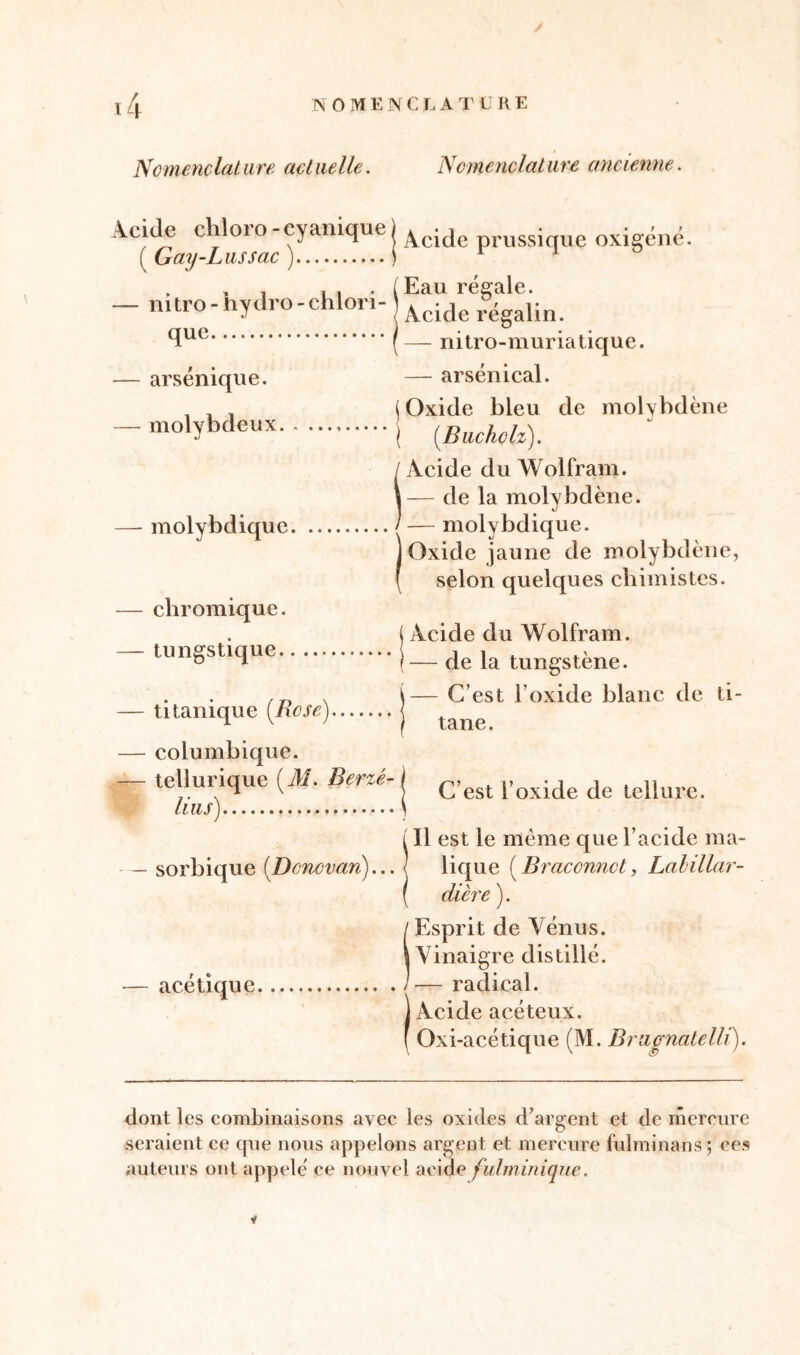 14 NOMENCLATURE
Nomenclature actuelle. Nomenclature ancienne.
Acide chloro-cyanique
( Gay-Lussac )........... Acide prussique oxigéné.
— nitro-hydro-chlori-
que.....................
Eau régale.
Acide régalin.
— nitro-muriatique.
— arsénique. — arsénical.
— molybdeux...........
Oxide bleu de molybdène
(Bucholz).
— molybdique...........
Acide du Wolfram.
— de la molybdène.
— molybdique.
Oxide jaune de molybdène,
selon quelques chimistes.
— chromique.
— tungstique..............
Acide du Wolfram.
— de la tungstène.
— titanique (Rose).......
— C'est l'oxide blanc de ti-
tane.
— columbique.
— tellurique (M. Berzé-
lius)....................
C'est l'oxide de tellure.
— sorbique (Donovan)...
Il est le même que l'acide ma-
lique (Braconnot, Labillar-
dière).
— acétique.................
Esprit de Vénus.
Vinaigre distillé.
— radical.
Acide acéteux.
Oxi-acétique (M. Brugnatelli).
dont les combinaisons avec les oxides d'argent et de mercure
seraient ce que nous appelons argent et mercure fulminans; ces
auteurs ont appelé ce nouvel acide fulminique.